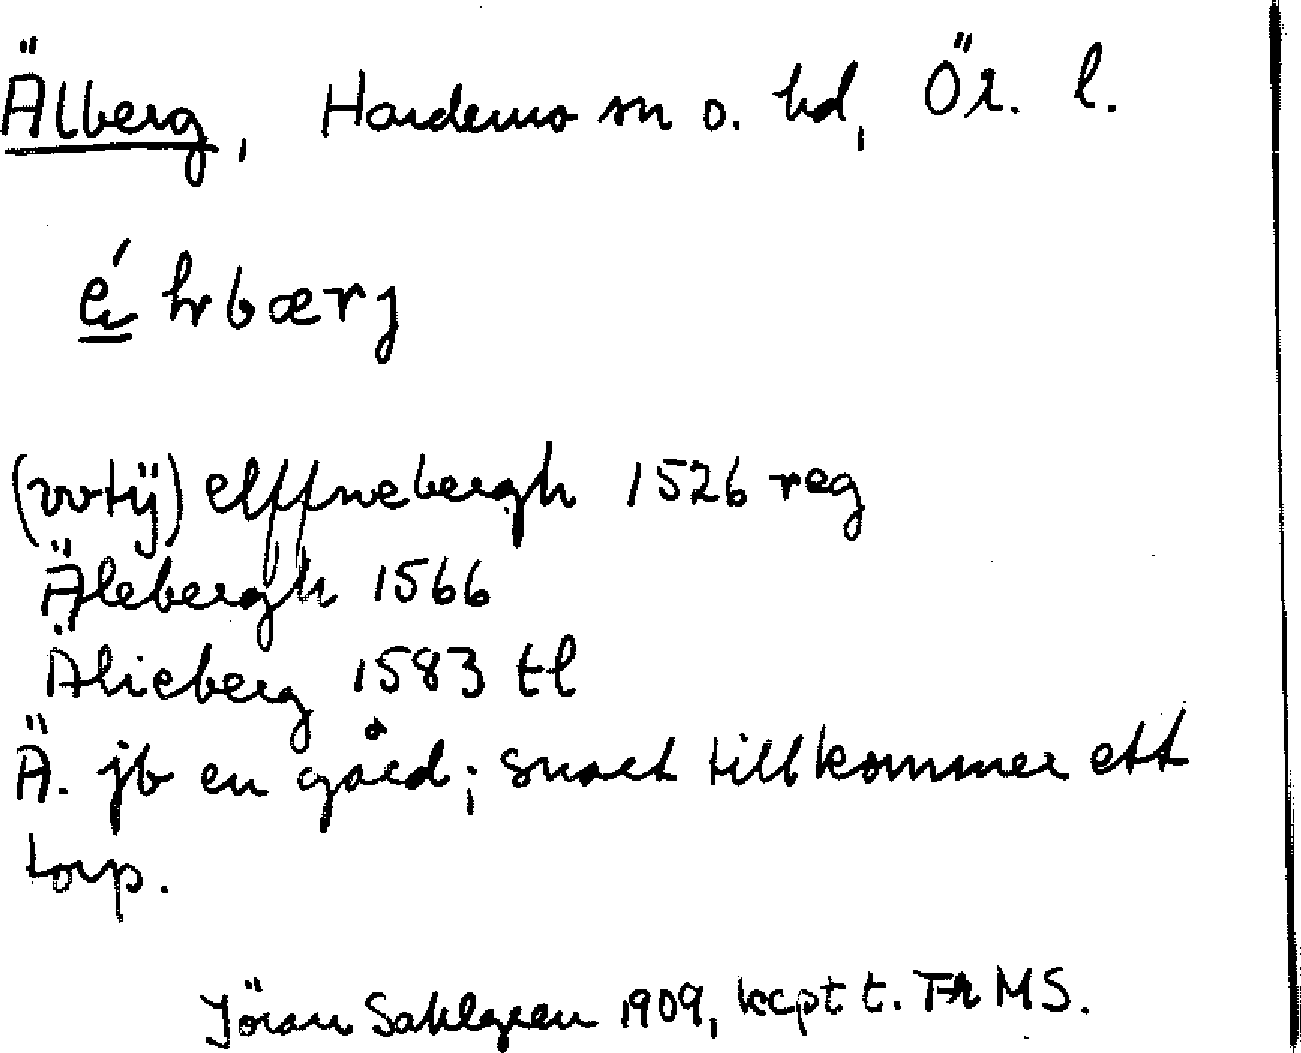 Älberg, Hardemo sn o. hd, Ör. l.
(vvtij) elffnebergh 1526 reg
Älebergh 1566
Älieberg 1583 tl
Ä. jb en gård; snart tillkommer ett
torp.
Jöran Sahlgren 1909, kcpt t. FRMS.